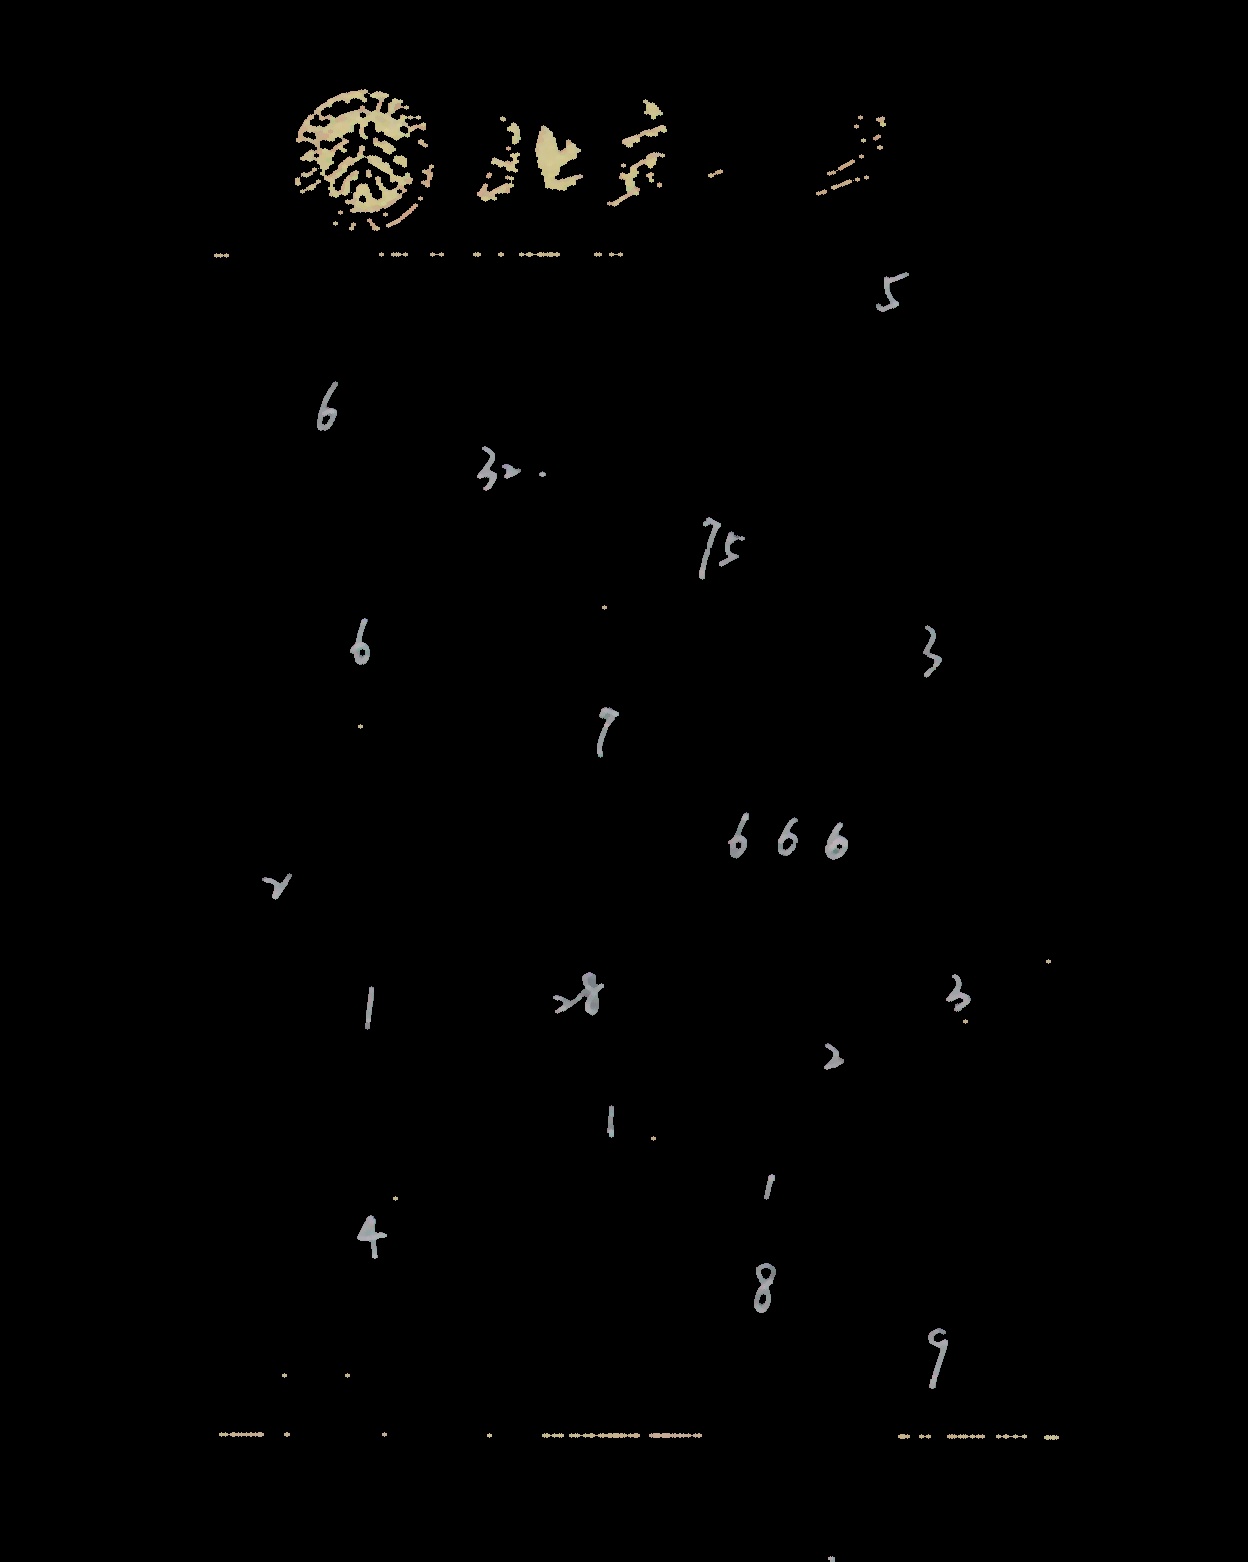 5
6
32.
75
6 3
7
6 6 6
2
1 28 3
2
1
1
4
8
9